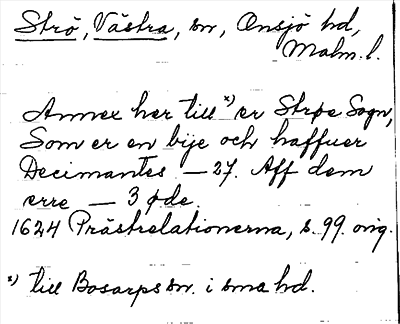 Strö, Västra, sn, Onsjö hd,
Malm. l.
Annex her till x) er Strøe Sogn,
Som er en bije och haffuer
Decimantes — 27. Aff dem
erre — 3 øde.
1624 Prästrelationerna, s. 99. orig.
x) till Bosarps sn. i sma hd.